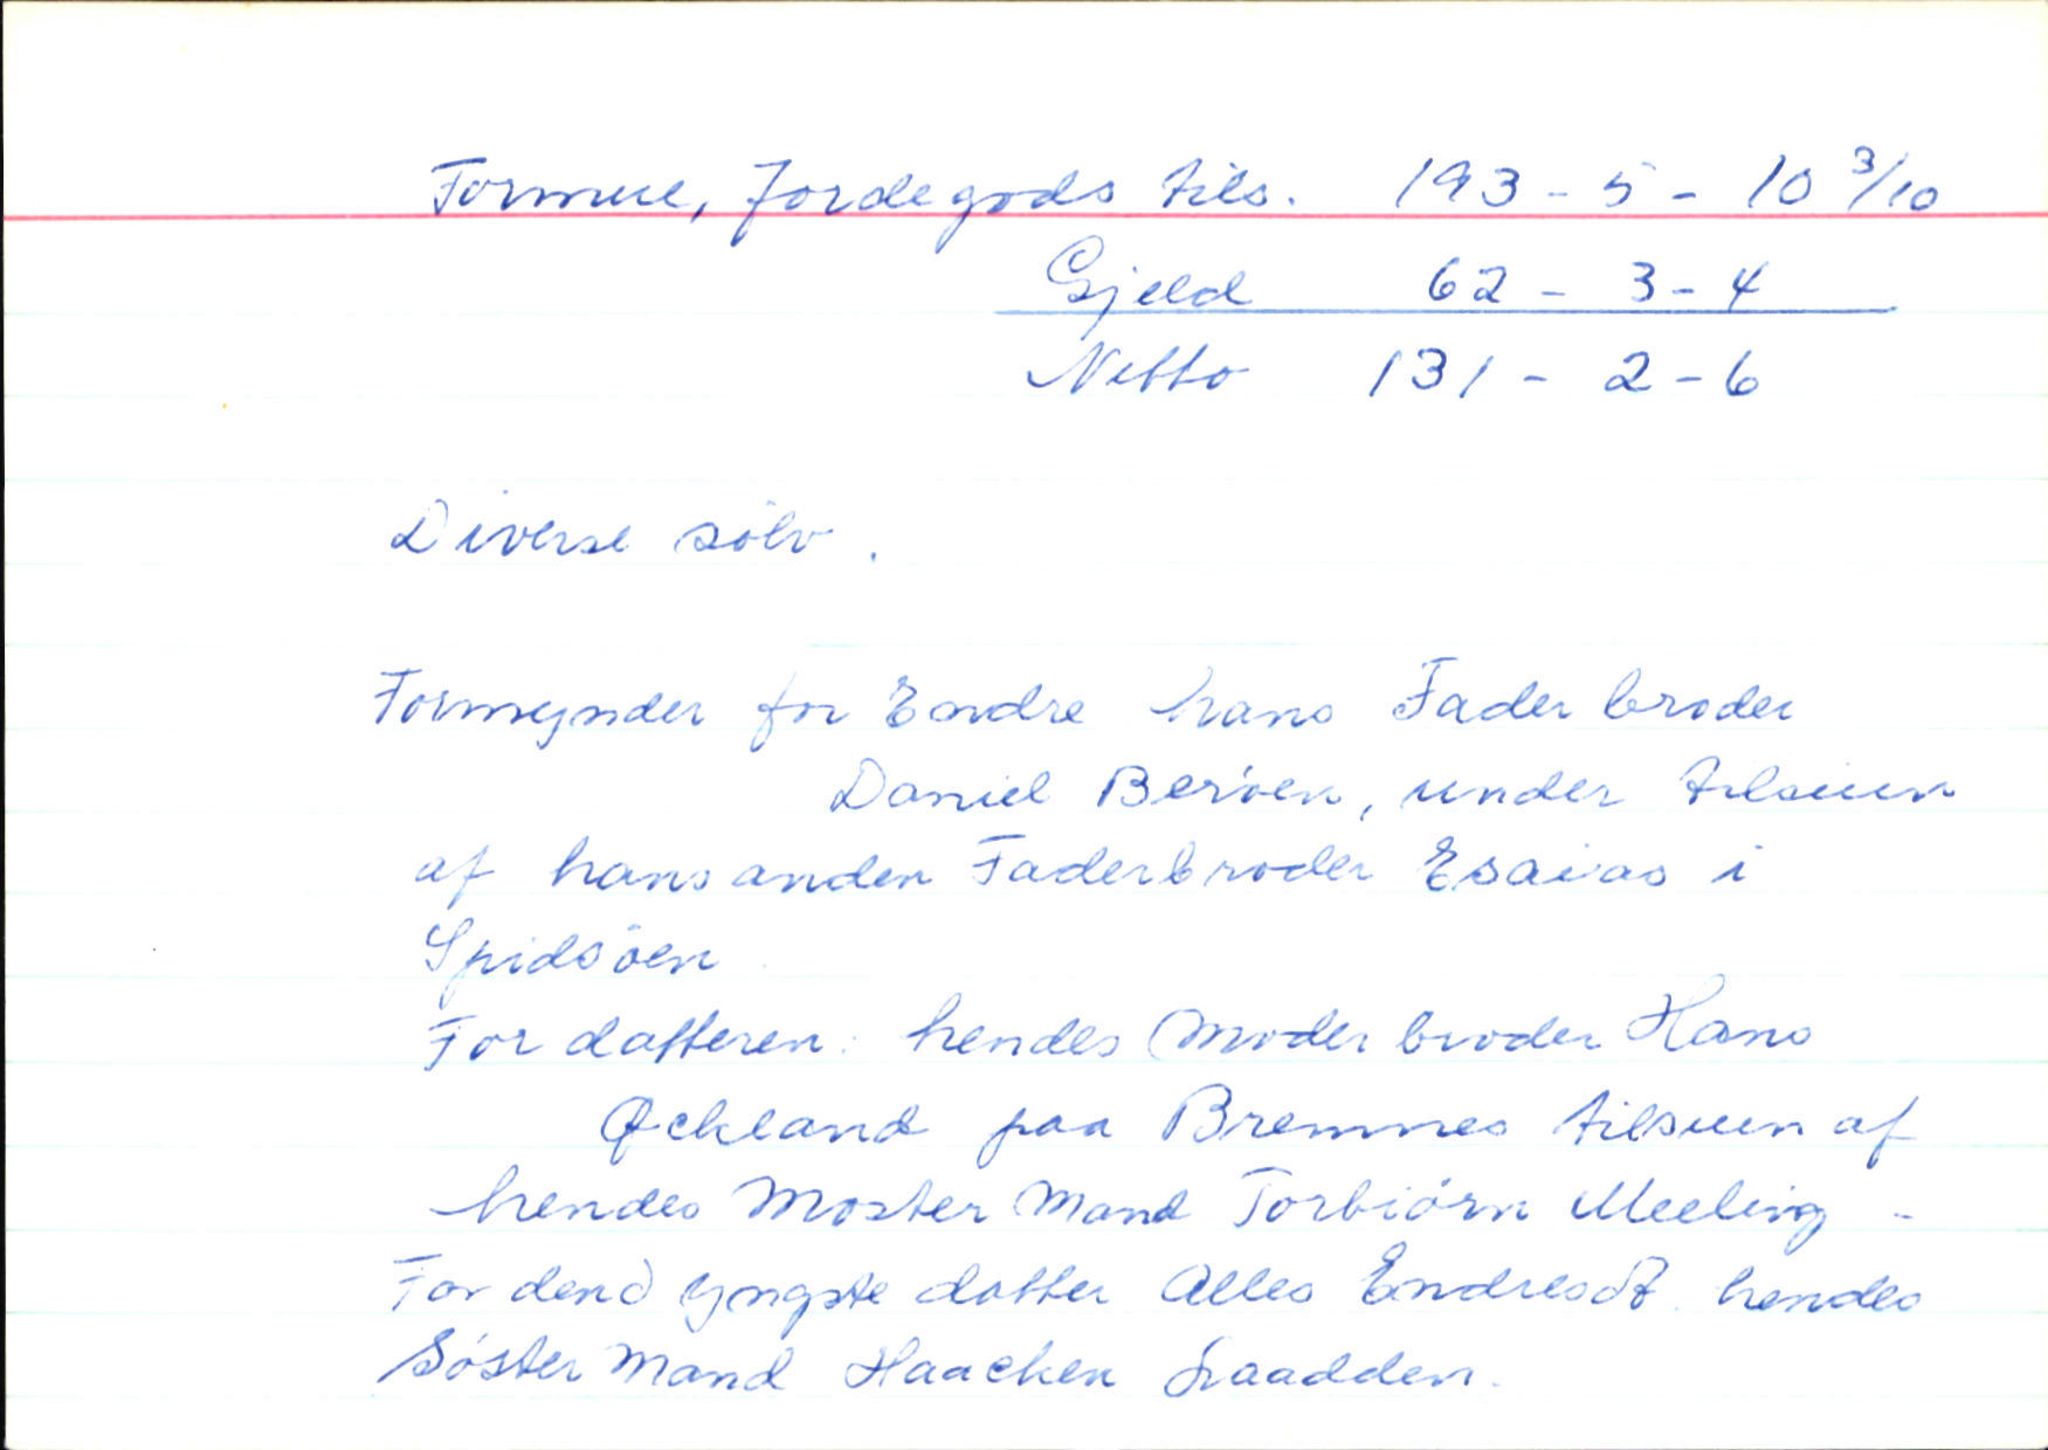 Formue, Jordegods tils. 193 - 5 - 10 3/10
Gjeld 62 - 3 - 4
Netto 131 - 2 - 6
Diverse sölv.
Formynder for Endre hans Fader broder
Daniel Beröen, under tilsiun
af hans anden Faderbroder Esaias i
Spidsöen
For datteren: hendes Moder broder Hans
Öckland paa Bremnes tilsuen af
hendes Moster Mand Torbiörn Meeling -
For dend yngste datter Alles Endresdt. hendes
Söster Mand Haacken